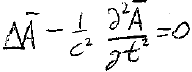 ΔĀ - 1/c² ∂²Ā/∂t² = 0